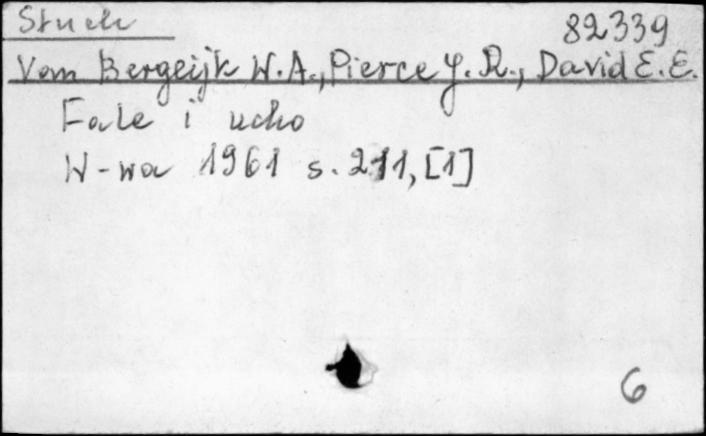 Słuch
82339
Van Bergeijk W.A., Pierce J.R., David E.E.
Fale i ucho
W-wa 1961 s. 211, [1]
6